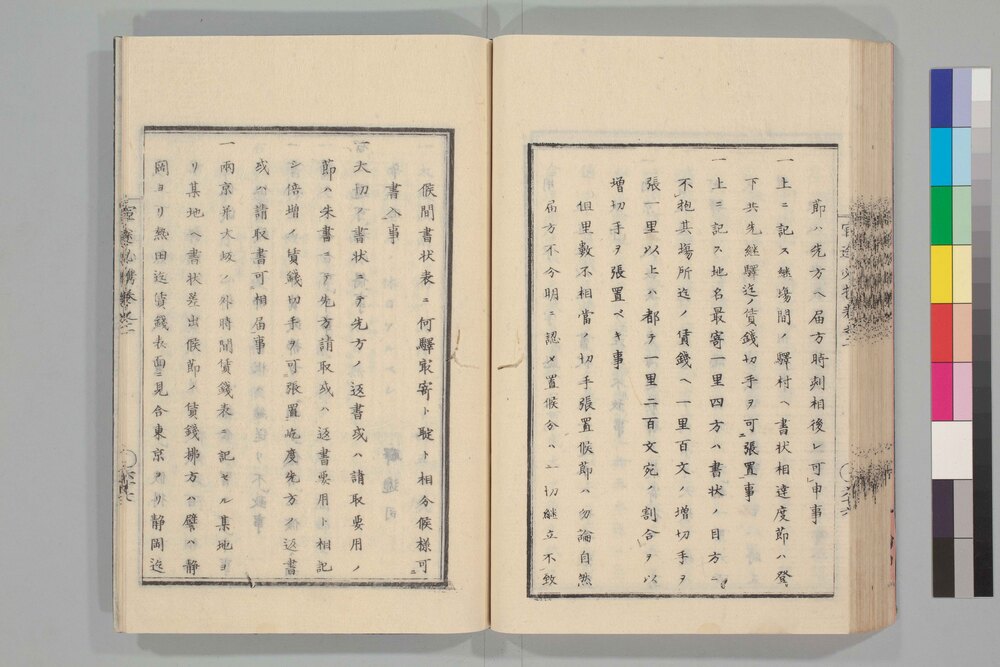 節ハ先方ヘ届方時刻相後レ可申事
一上ニ記ス継場間ノ驛村ヘ書状相達度節ハ登
下共先継驛迄ノ賃錢切手ヲ可張置事
一上ニ記ス地名最寄一里四方ハ書状ノ目方ニ
不抱其場所迄ノ賃錢ヘ一里百文ノ増切手ヲ
張一里以上ハ都テ一里二百文宛ノ割合ヲ以
増切手ヲ張置ベキ事
但里數不相當ノ切手張置候節ハ勿論自然
届方不分明ニ認メ置候分ハ一切継立不致
候間書状表ニ何驛最寄ト聢ト相分候様可
書入事
一大切ノ書状ニテ先方ノ返書或ハ請取要用ノ
節ハ朱書ニテ先方請取或ハ返書要用ト相記
シ倍増ノ賃錢切手ヲ可張置屹度先方ノ返書
或ハ請取書可相届事
一兩京并大坂ノ外時間賃錢表ニ記セル某地ヨ
リ某地ヘ書状差出候節ノ賃錢拂方ハ譬ハ静
岡ヨリ熱田迄賃錢表面ニ見合東京ヨリ静岡迄